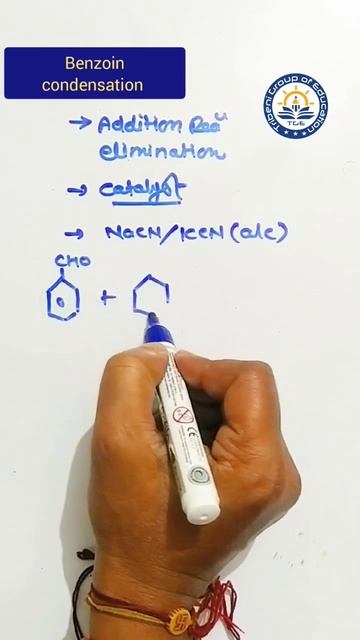 Benzoin
condensation
Tribeni Group of Education
TGE
→ Addition Reaⁿ
elimination
→ Catalyst
→ NaCN/KCN (alc)
CHO
+